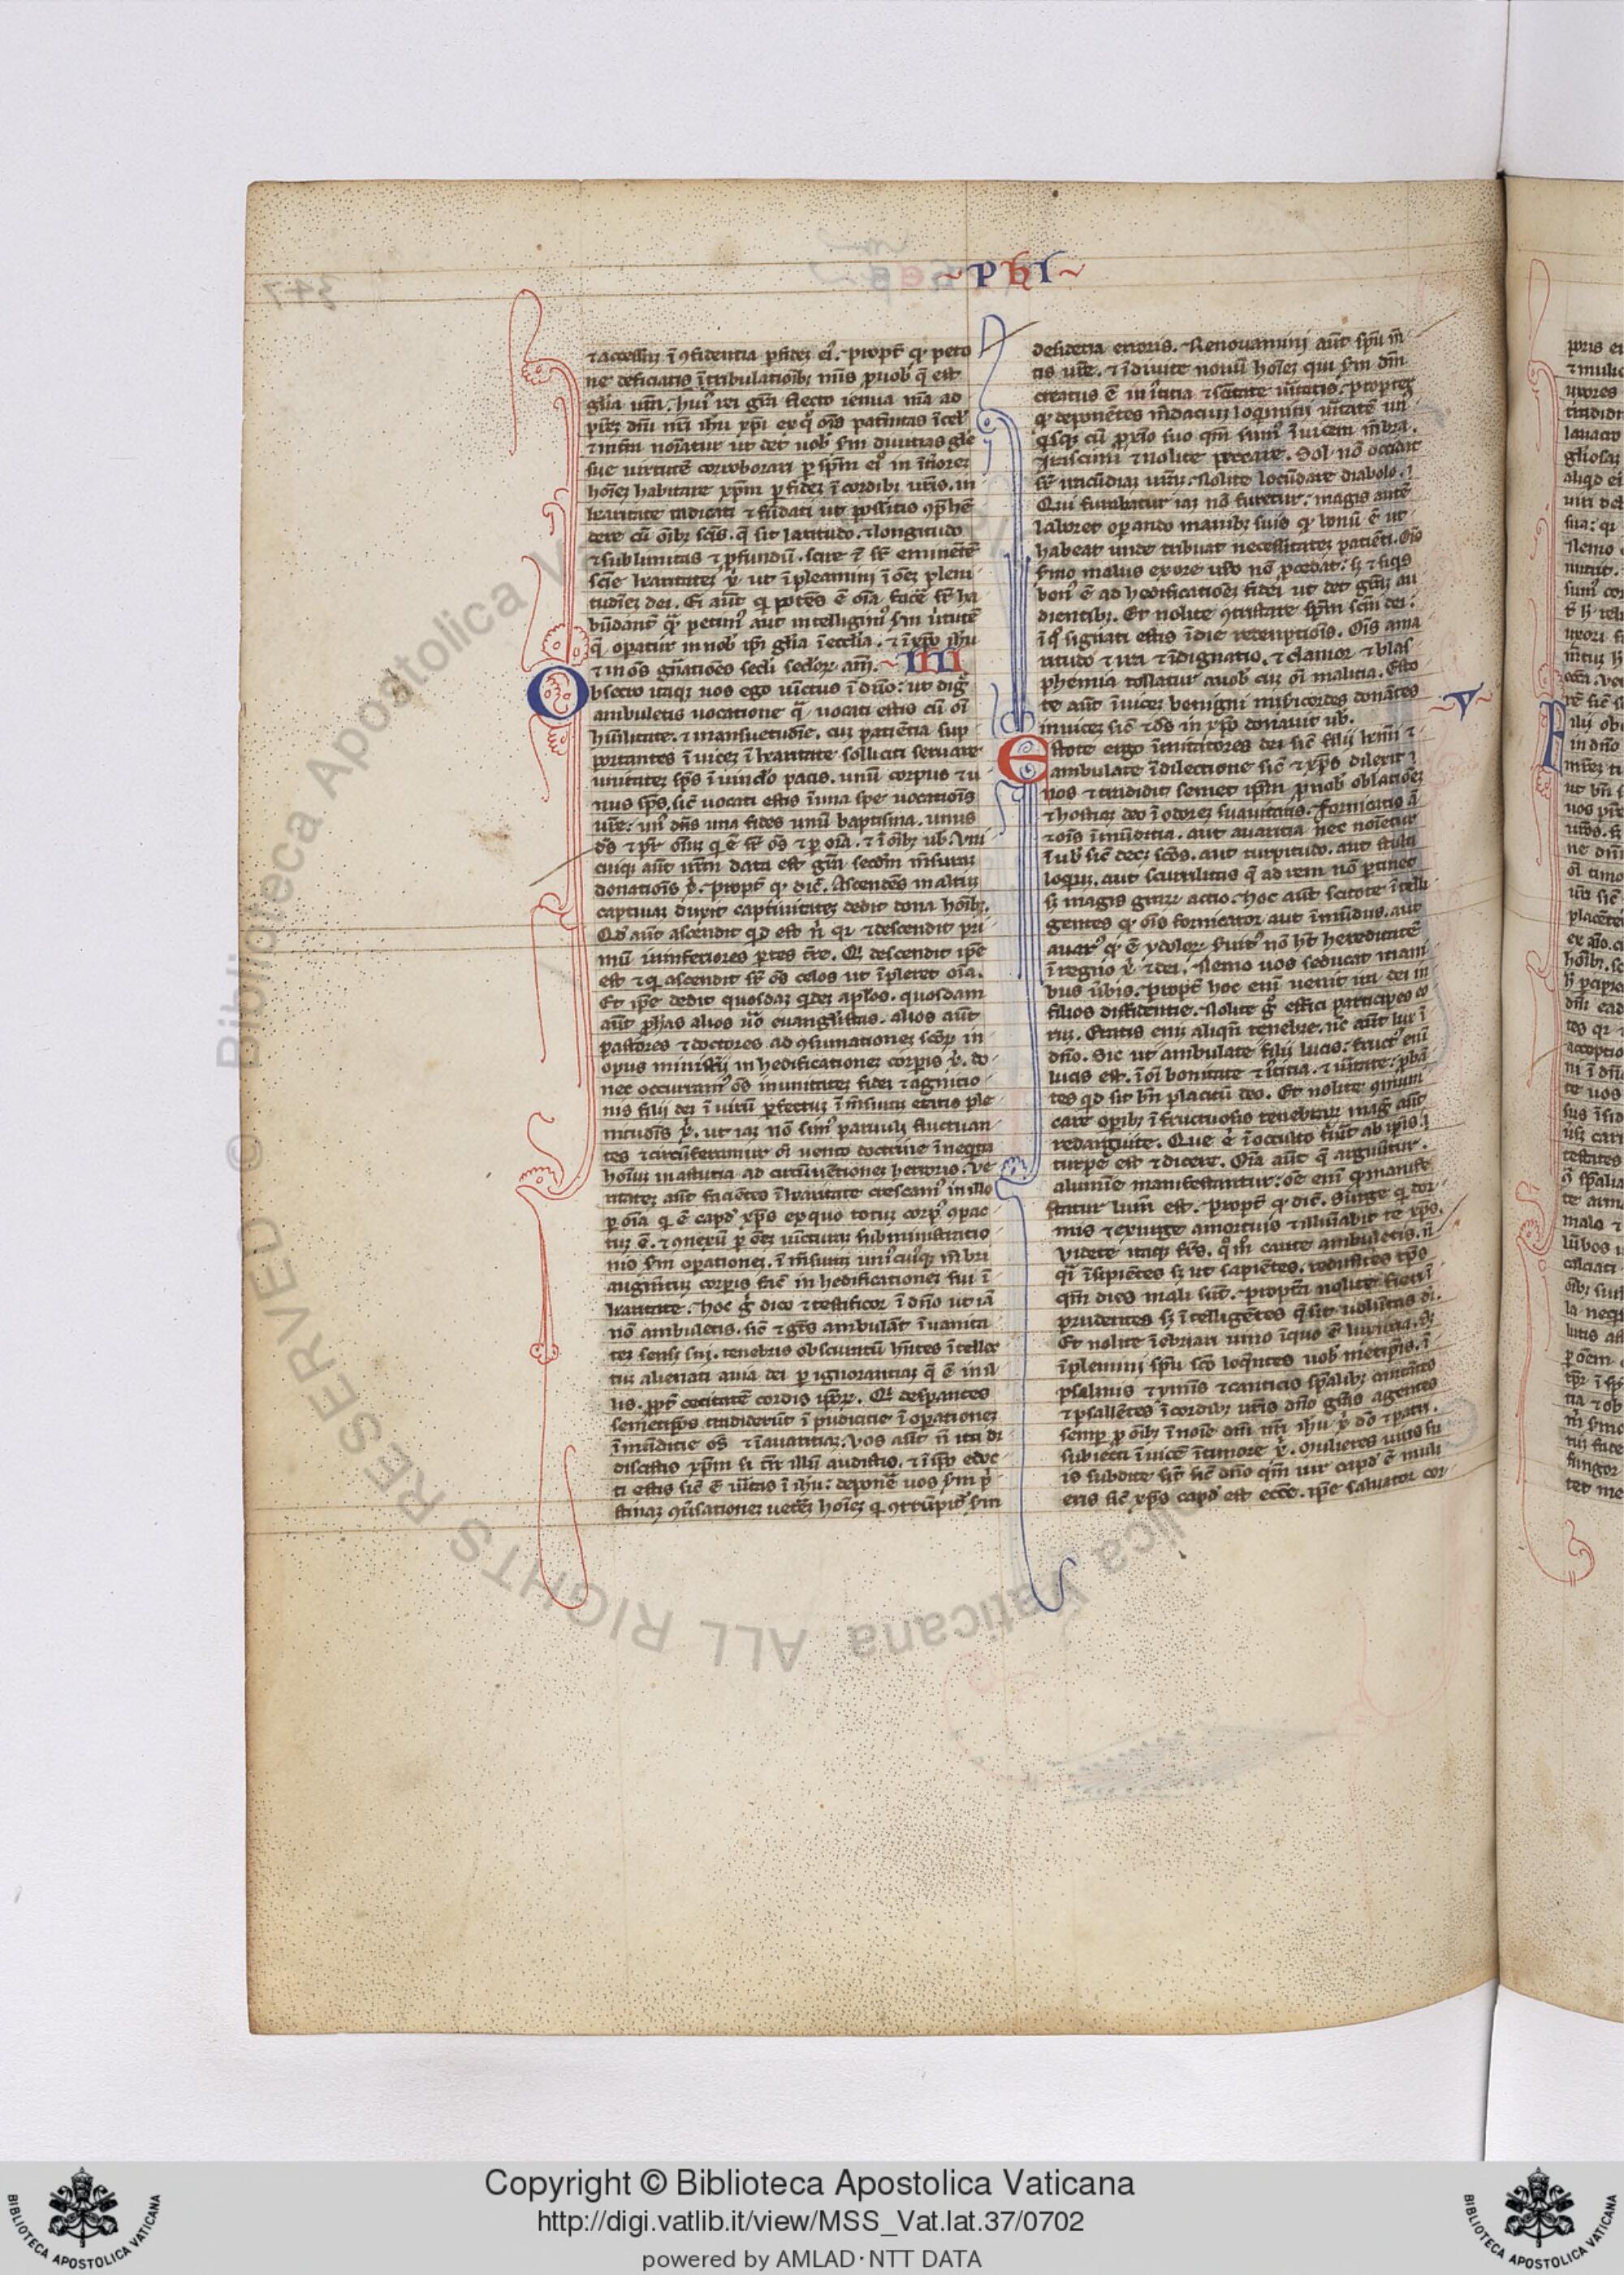 ~phi~
⁊ accessum ī ꝯfidentia ꝑ fidez eiꝰ. propt̄ qͥ peto
ne deficiatis ī tribulatiōibꝫ meis ꝓ uob̄ q̄ est
gl̄ia ur̄a. huiꝰ rei gr̄a flecto ienua mea ad
pr̄ez dn̄i nr̄i ih̄u xp̄i ex qͦ oīs pat̄nitas ī cel̄
⁊ in t̄ra noīatur ut det uob̄ sm̄ diuitias gl̄e
sue uirtutē corroborari ꝑ sp̄m eiꝰ in īteriorez
hoīez habitare xp̄m ꝑ fidez ī cordibꝫ ur̄is. in
karitate radicati ⁊ fūdati ut possitis ꝯp̄hē
dere cū oībꝫ sc̄is. q̄ sit latitudo. ⁊ longitudo
⁊ sublimitas ⁊ ꝓfundū. scire ē sr̄ eminētē
scīe karitatez x̄ ut īpleamini ī oēz pleni
tudīez dei. Ei aut̄ qͥ potēs ē oīa facē sr̄ ha
būdant̄ qͣ petimꝰ aut intelligimꝰ sm̄ uirtutē
q̄ opatur in nob̄ ip̄i gl̄ia ī ecc̄lia. ⁊ ī xp̄o ih̄u
⁊ in oēs gn̄atiōes sc̄li sc̄lor̄. am̄. ~IIII
Obsecro itaqꝫ uos ego uīctus ī dn̄o: ut digͤ
ambuletis uocatione qͣ uocati estis cū oī
hūilitate. ⁊ mansuetudīe. cuz patiētia sup
portantes ī uicez ī karitate solliciti seruare
unitatez sp̄s ī uinclo pacis. unū corpus ⁊ u
nus sp̄s. sic̄ uocati estis ī una spe uocatiōis
ur̄e: unꝰ dn̄s una fides unū baptisma. unus
dūs ⁊ pr̄ oīuz q̄ ē sr̄ oēs ⁊ ꝑ oīa. ⁊ ī oībꝫ ub̄. Uni
cuiqꝫ aut̄ nr̄m data est gr̄a secōm m̄suraz
donatiōis x̄. propt̄ qͥ dic̄. Ascendēs in altuz
captiuaz duxit captiuitatez dedit dona hoībꝫ.
Qd̄ aut̄ ascendit qͥd est n̄ qꝫ ⁊ descendit pri
mū in inferiores ꝑtes tr̄e. Qͥ descendit ip̄e
est ⁊ qͥ ascendit sr̄ oēs celos ut īpleret oīa.
Et ip̄e dedit quosdaz qͥdez ap̄los. quosdam
aut̄ ꝓph̄as alios uͦo euangl̄istas. alios aut̄
pastores ⁊ doctores ad ꝯsumationez sc̄oꝝ in
opus ministͥii in hedificationez corꝑis x̄. do
nec occurramꝰ oēs in unitatez fidei ⁊ agnitio
nis filij dei ī uirū ꝑfectuz ī m̄suraz etatis ple
nitudīs x̄. ut iaz nō simꝰ paruuli fluctuan
tes ⁊ circūferamur oī uento doctrine ī nequi
hoīuz in astutia ad circūuētionez herroris. Ve
ritatez aut̄ faciētes ī karitate crescamꝰ in illo
ꝑ oīa qͥ ē capd̄ xp̄s ex quo totuz corpꝰ ꝯpac
tuz ē. ⁊ ꝯnexū ꝑ oēz uīcturaz subministratio
nis sm̄ opationez. ī m̄suraz uniꝰcuiꝰqꝫ m̄bri
augm̄tuz corꝑis facit in hedificationez sui ī
karitate. hoc gͦ dico ⁊ testificor ī dn̄o ut iā
nō ambuletis. sic̄ ⁊ gt̄es ambulāt ī uanita
tez sensꝫ sui. tenebris obscuratū hn̄tes ītellec
tuz alienati a uia dei ꝑ ignorantiaz q̄ ē in il
lis. ꝓpt̄ cecitatē cordis ip̄oꝝ. Qͥ desꝑantes
semetip̄os tradiderūt ī pudicitie ī opationez
ī mūditie oēs ⁊ ī auaritiaz. Vos aut̄ n̄ ita di
discistis xp̄m si tn̄ illū audistis. ⁊ ī ip̄o edoc
ti estis sic̄ ē uītas ī ih̄u: deponē uos sm̄ pͥ
stinaz ꝯūsationez uetēz hoīez qͥ ꝯrrūpit᷑ sm̄
desideria erroris. Renouamini aut̄ sp̄u m̄
tis ur̄e. ⁊ īduite nouū hoīez qui sm̄ dm̄
creatus ē in iustitia ⁊ scītate ūitatis. propterez
qͥ deponētes m̄daciuz loqmini ūitatē un
qͥsqꝫ cū ꝓxīo suo qm̄ sumꝰ īuicem m̄bra.
Irascimi ⁊ nolite peccare. Sol nō occidat
sr̄ iracūdiaz ur̄az. Nolite locū dare diabolo.
Qui furabatur iaz nō furetur: magis autē
laboret oꝑando manibꝫ suis qͥ bonū ē ut
habeat unde tribuat necessitatez patiēti. Oīs
sermo malus ex ore ur̄o nō ꝓcedat: sꝫ ⁊ siqͥs
bonꝰ ē ad hedificationēz fidei ut det gr̄az au
dientibꝫ. Et nolite ꝯtristare sp̄m sc̄m dei:
ī qͦ signati estis ī die redemptiōis. Oīs ama
ritudo ⁊ ira ⁊ īdignatio. ⁊ clamor ⁊ blas
phemia tollatur a uob̄ cuz oī malitia. Esto
te aut̄ īuicez benigni misericordes donātes
inuicez sic̄ ⁊ ds̄ in xp̄o donauit ub̄. ~V~
Estote ergo īmitatores dei sic̄ filij kr̄mi ⁊
ambulate ī dilectione sic̄ ⁊ xp̄s dilexit
nos ⁊ tradidit semet ip̄m ꝓ nob̄ oblationēz
⁊ hostiaz deo ī odorez suauitatis. Fornicatio ā
⁊ oīs īmūditia. aut auaritia nec noīetur
ī ub̄ sic̄ decꝫ sc̄os. aut turpitudo. aut stulti
loquiz. aut scurrilitas q̄ ad rem nō ꝑtinet
sꝫ magis gr̄aꝝ actio. hoc aut̄ scitote ītelli
gentes qͥ oīs fornicator aut īmūdus. aut
auarꝰ qͥ ē ydoloꝝ seruitꝰ nō hꝫ hereditatē
ī regno x̄ ⁊ dei. Nemo uos seducat inani
bus ūbis. propt̄ hoc enī uenit ira dei in
filios diffidentie. Nolite gͦ effici participes eo
ruz. Eratis eniz aliqn̄ tenebre. nc̄ aut̄ lux ī
dn̄o. Sic ut ambulate filij lucis: fructꝰ enī
lucis est. ī oī bonitate ⁊ iustitia. ⁊ ūitate: ꝓbā
tes qd̄ sit bn̄ placitū deo. Et nolite ꝯmuni
care oꝑibꝫ ī fructuosis tenebraꝝ mag̃ aut̄
redarguite. Que ē ī occulto fiūt ab ip̄is
turpe est ⁊ dicere. Oīa aut̄ q̄ arguūtur.
a lumīe manifestantur: oē enī qͥ manife
statur lum̄ est. propt̄ qͥ dic̄. Surge qͥ dor
mis ⁊ exurge a mortuis ⁊ illuīabit te xp̄s.
Videte itaqꝫ fr̄s. qͦmͦ caute ambuletis. n̄
qͣi īsipiētes sꝫ ut sapiētes. redimētes tp̄s
qm̄ dies mali sūt. proptea nolite fieri ī
prudentes sꝫ ītelligētes q̄ sit uolūtas di.
Et nolite īebriari uino ī quo ē luxuria. sꝫ
īplemini sp̄u sc̄o loqn̄tes uob̄ metip̄is. ī
psalmis ⁊ ymnis ⁊ canticis sp̄alibꝫ cantātes
⁊ psallētes ī cordibꝫ ur̄is dn̄o gr̄as agentes
semꝑ ꝓ oībꝫ ī noīe dn̄i nr̄i ih̄u x̄ dō ⁊ patri.
subiecti ī uicē ī timore x̄. Mulieres uiris su
is subdite sīt sic̄ dn̄o qm̄ uir capd̄ ē muli
eris sic̄ xp̄s capd̄ est ecc̄e. ip̄e saluator cor
Copyright © Biblioteca Apostolica Vaticana
http://digi.vatlib.it/view/MSS_Vat.lat.37/0702
powered by AMLAD·NTT DATA